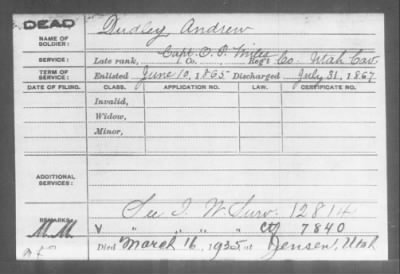 DEAD
NAME OF SOLDIER: Dudley, Andrew
Capt. O. P. Miles
SERVICE: Late rank, Co. Reg't Co. Utah Cav.
TERM OF SERVICE: Enlisted June 10, 1865 Discharged July 31, 1867
DATE OF FILING. CLASS. APPLICATION NO. LAW. CERTIFICATE NO.
Invalid,
Widow,
Minor,
ADDITIONAL SERVICES:
See I. W Surv. 12814
REMARKS: V " " " " Ctf 7840
M.M.
Died March 16, 1935 at Jensen, Utah